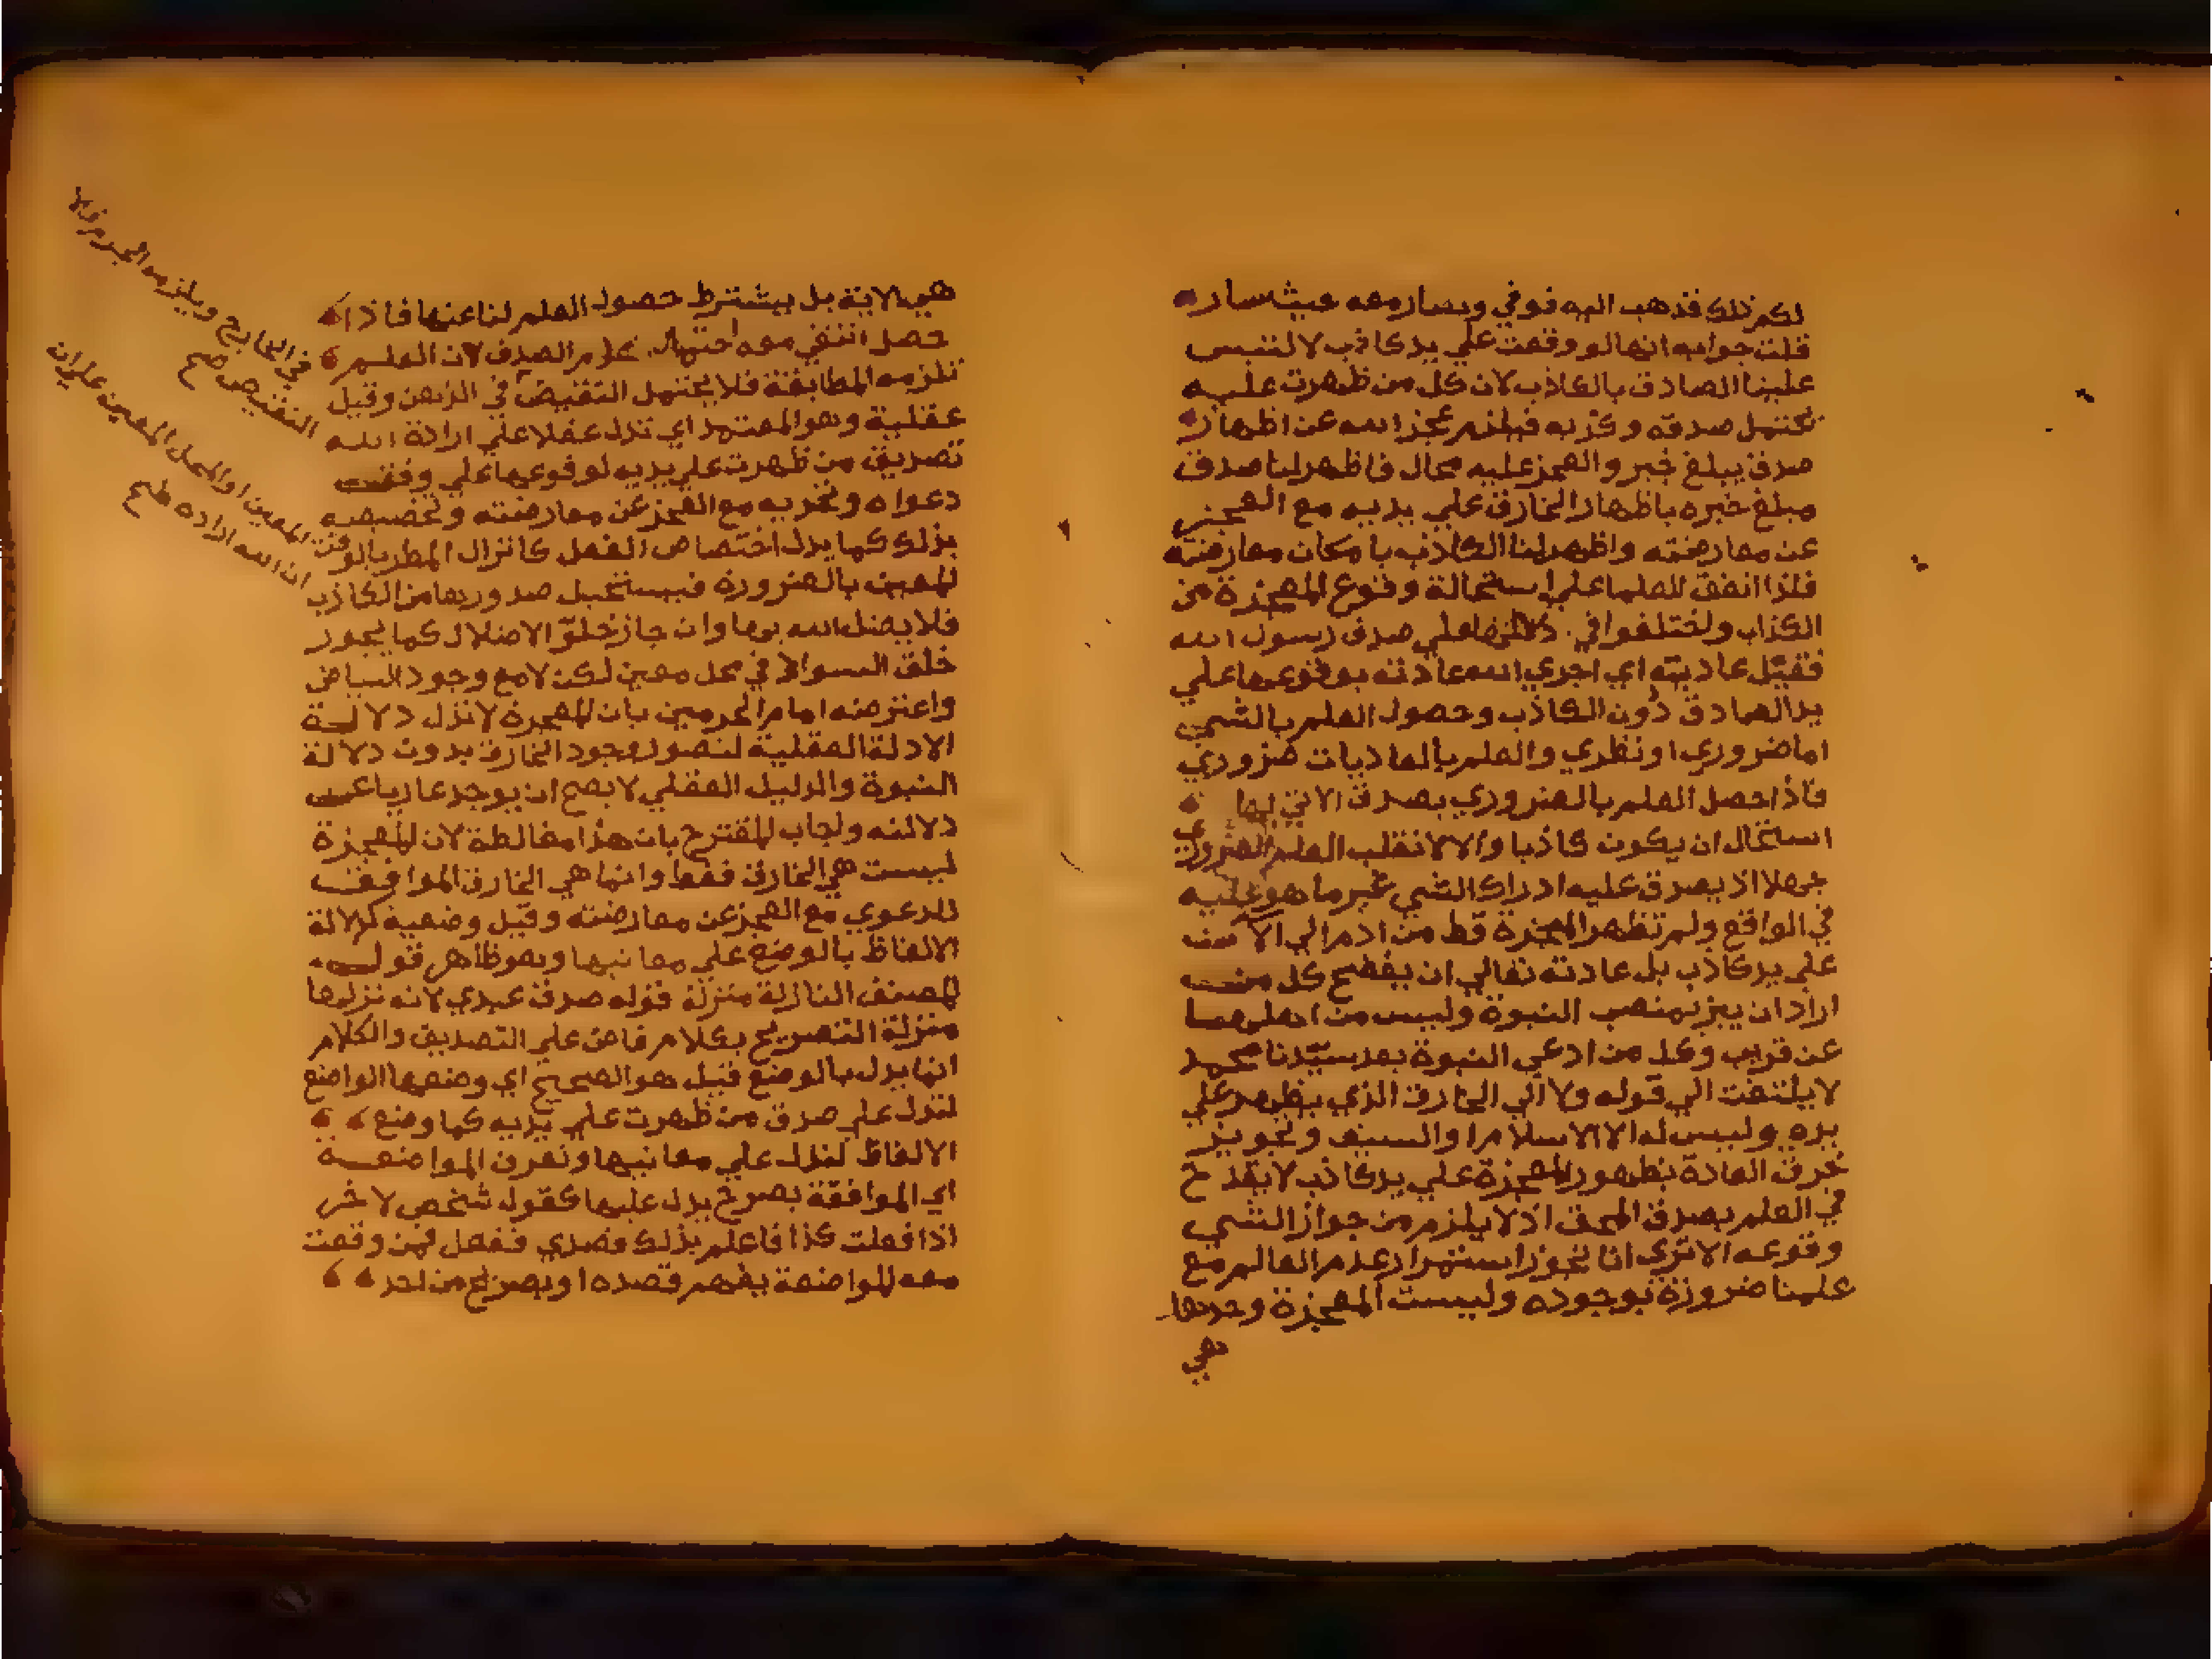 لكم ذلك فذهب اليه فوفي وصار معه حيث سار
قلت جوابه انها لو وقعت علي يد كاذب لالتبس
علينا الصادق بالكاذب لان كل من ظهرت عليه
يحتمل صدقه وكذبه فيلزم عجز الله عن اظهار
صدق مبلغ خبره والعجز عليه محال فاظهر لنا صدق
مبلغ خبره باظهار الخارق علي يديه مع العجز
عن معارضته واظهر لنا الكاذب بامكان معارضته
فلذا اتفق العلما علي استحالة وقوع المعجزة من
الكذاب واختلفوا في دلالتها علي صدق رسول الله
فقيل عادية اي اجري الله عادته بوقوعها علي
يد الصادق دون الكاذب وحصول العلم بالشي
اما ضروري او نظري والعلم بالعاديات ضروري
فاذا حصل العلم بالضروري بصدق الاتي بها
استحال ان يكون كاذبا والا لانقلب العلم الضروري
جهلا اذ يصدق عليه ادراك الشي غير ما هو عليه
في الواقع ولم تظهر المعجزة قط من ادم الي الآن
علي يد كاذب بل عادته تعالي ان يفضح كل من
اراد ان يبز بمنصب النبوة وليس من اهلها
عن قريب وكل من ادعي النبوة بعد سيدنا محمد
لا يلتفت الي قوله ولا الي الخارق الذي يظهر علي
يده وليس له الا الاسلام او السيف وتجويز
خرق العادة بظهور المعجزة علي يد كاذب لا يقدح
في العلم بصدق المحق اذ لا يلزم من جواز الشي
وقوعه الا تري انا نجوز استمرار عدم العالم مع
علمنا ضرورة بوجوده وليست المعجزة وحدها
هي
هي الاية بل يشترط حصول العلم لنا عنها فاذا
حصل انتفي معه احتمال عدم الصدق لان العلم
تلزمه المطابقة فلا يحتمل النقيض في الذهن وقيل
عقلية وهو المعتمد اي تدل عقلا علي ارادة الله
تصديق من ظهرت علي يديه لوقوعها علي وفق
دعواه وتحديه مع العجز عن معارضته وتخصيصه
بذلك كما يدل اختصاص الفعل كانزال المطر بالوقت
المعين بالضرورة فيستحيل صدورها من الكاذب
فلا يضل الله بها وان جاز خلق الاضلال كما يجوز
خلق السواد في محل معين لكن لا مع وجود البياض
واعترضه امام الحرمين بان المعجزة لا تدل دلالة
الادلة العقلية لتصور وجود الخارق بدون دلالة
النبوة والدليل العقلي لا يصح ان يوجد عاريا عن
دلالته واجاب المقترح بان هذا مغالطة لان المعجزة
ليست هي الخارق فقط وانما هي الخارق الموافق
للدعوي مع العجز عن معارضته وقيل وضعية كدلالة
الالفاظ بالوضع علي معانيها وهو ظاهر قول
المصنف النازلة منزلة قوله صدق عبدي لانه نزلها
منزلة التصريح بكلام خاص علي التصديق والكلام
انما يدل بالوضع قيل هو الصحيح اي وضعها الواضع
لتدل علي صدق من ظهرت علي يديه كما وضع
الالفاظ لتدل علي معانيها وتعرف المواضعة
اي الموافقة بصريح يدل عليها كقول شخص لاخر
اذا فعلت كذا فاعلم بذلك قصدي ففعل فمن وقعت
معه المواضعة يفهم قصده او بصريح من احد
في الخارج ويلزمه الجزم فلا
النقيض صح
المعين او المحل المعين علي ان
ان الله اراده صح